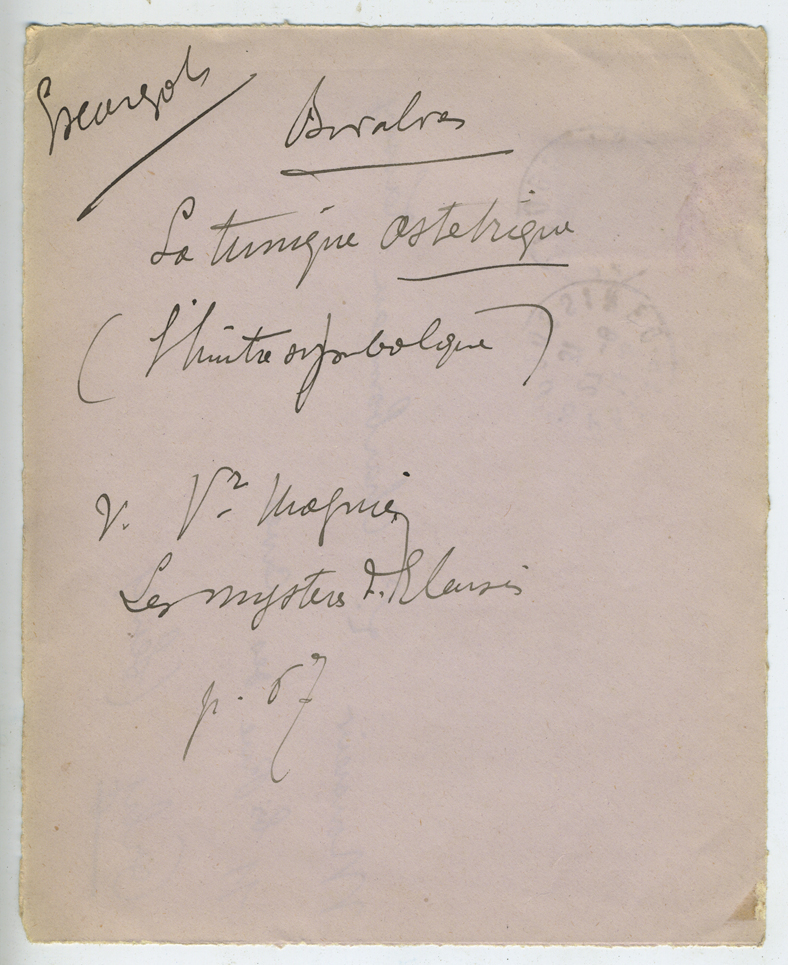 Escargots
Bivalves
La tunique ostetrique
(l'huître symbolique)
V. Vr Magnien
Les mystères d'Eleusis
p. 67